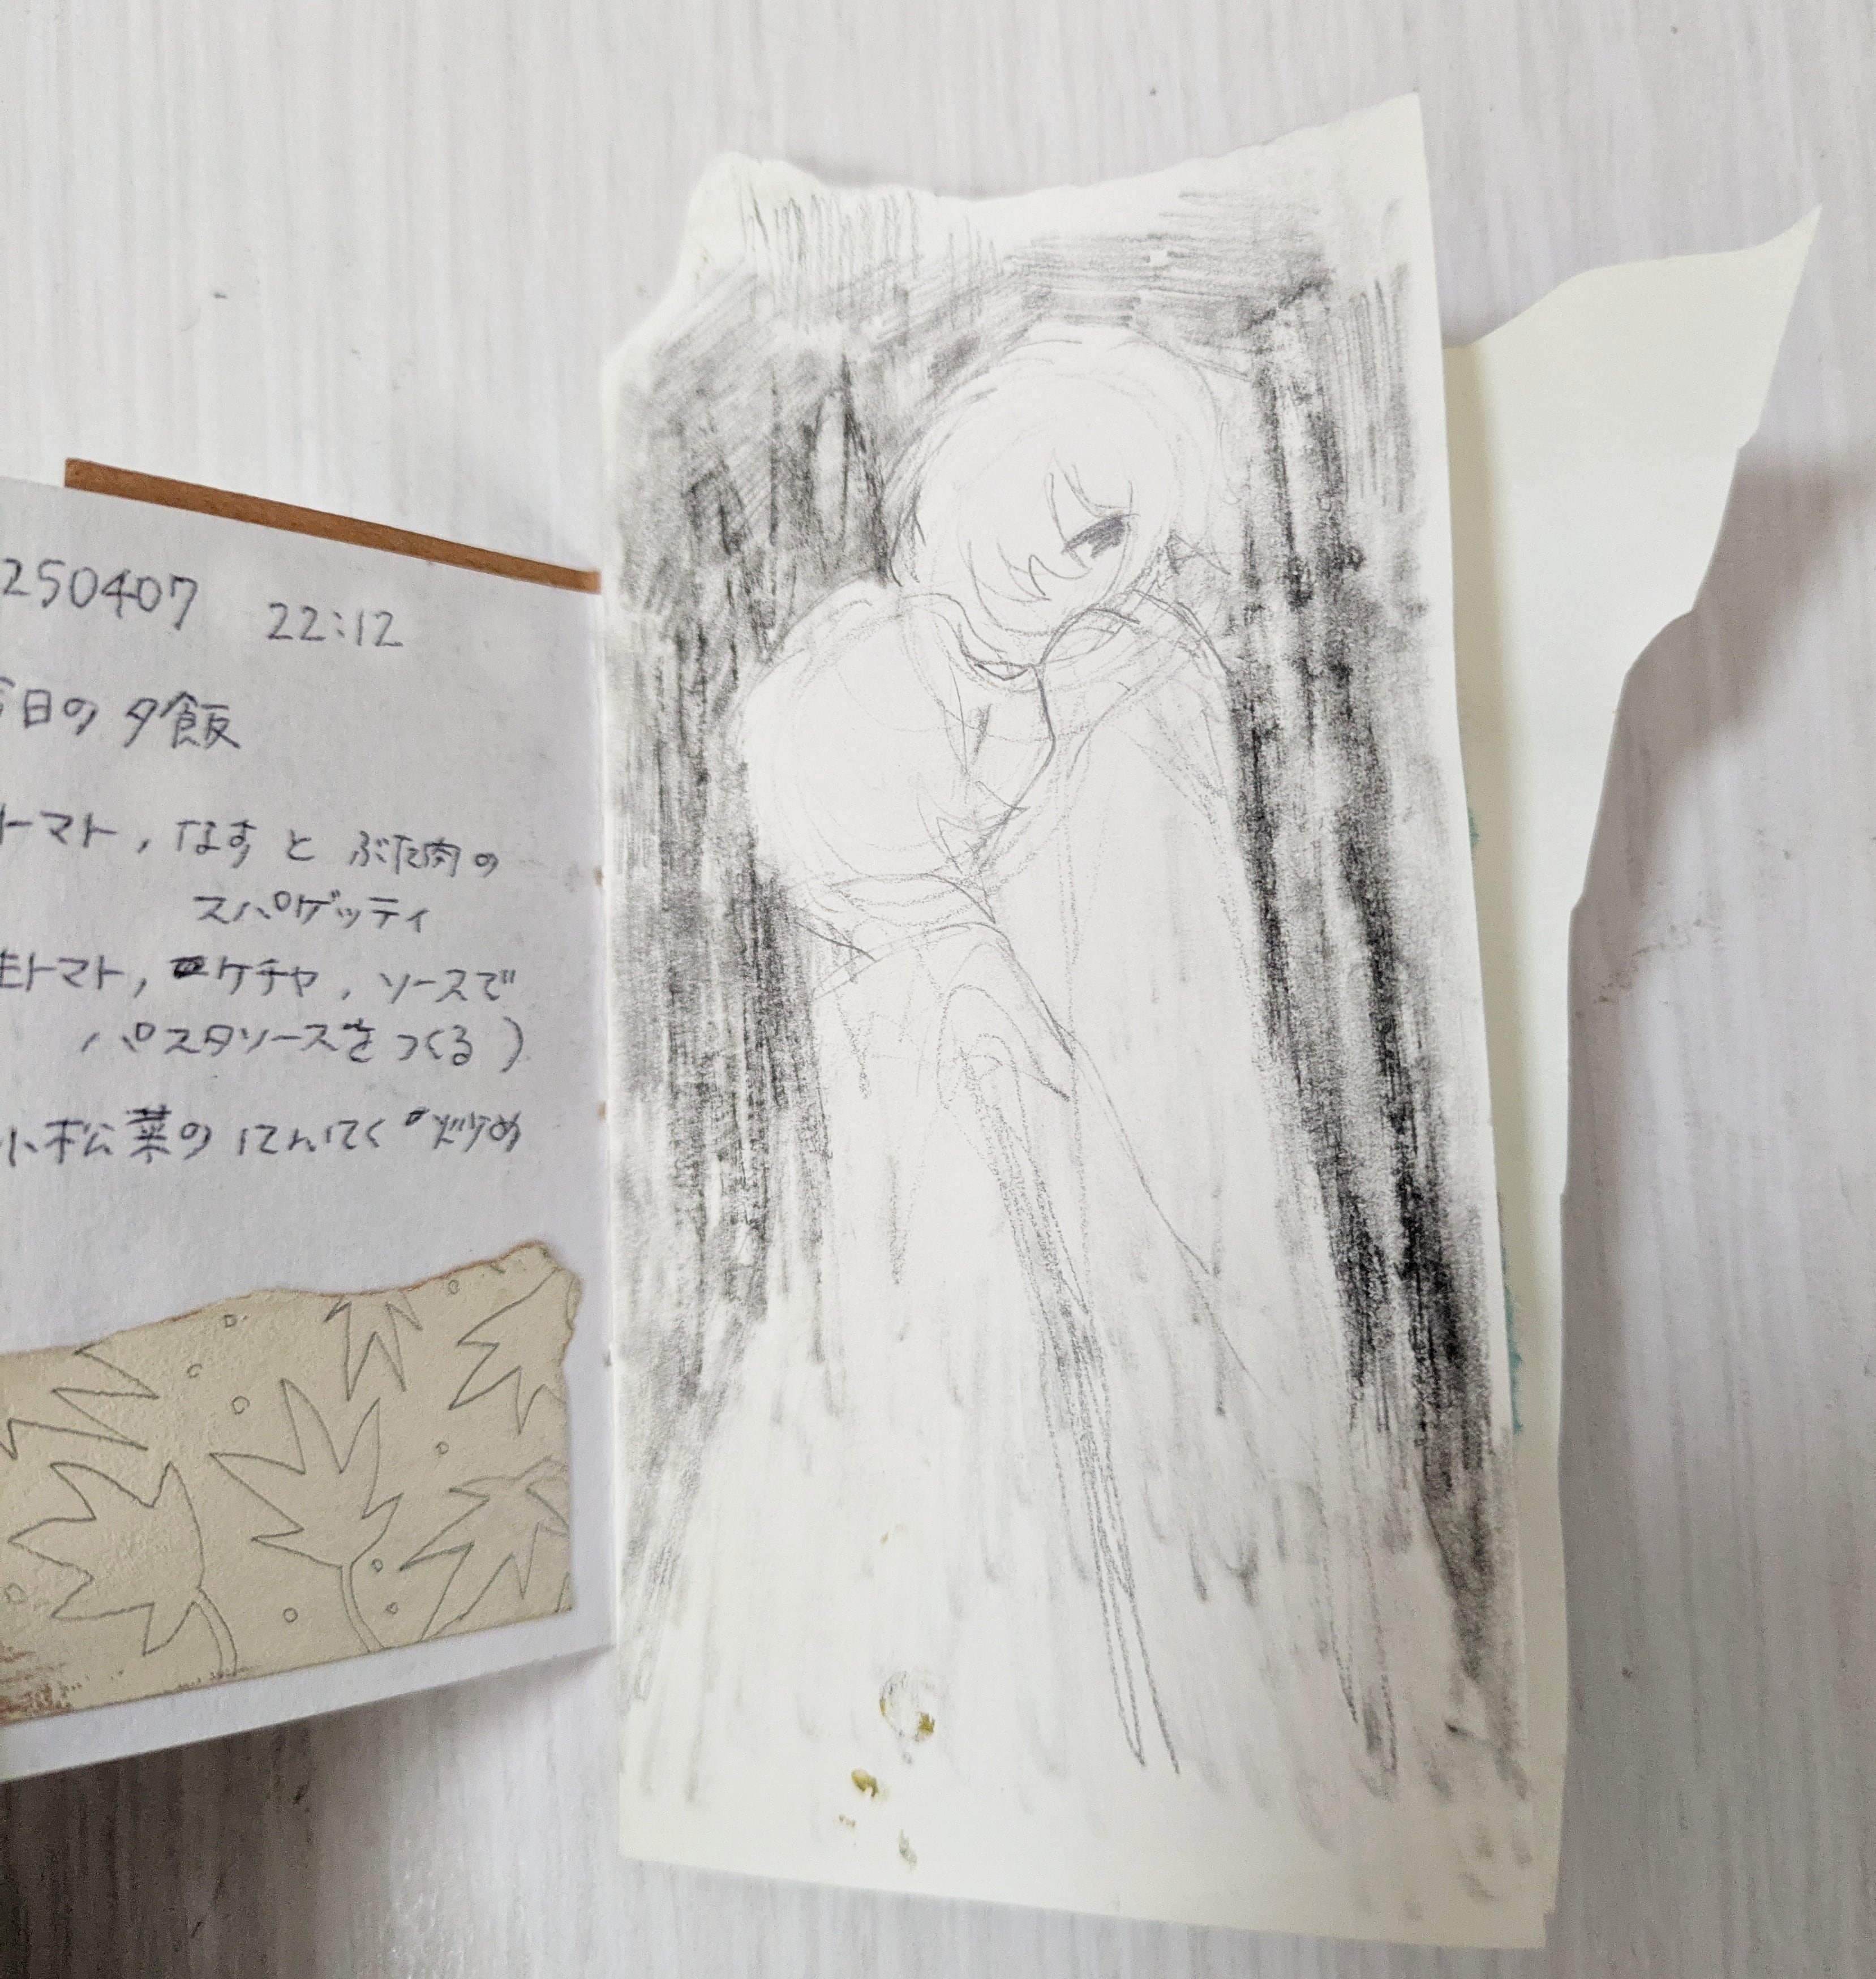 250407 22:12
今日の夕飯
トマト,なすとぶた肉の
スパゲッティ
生トマト,ケチャ,ソースで
パスタソースをつくる)
小松菜のにんにく炒め